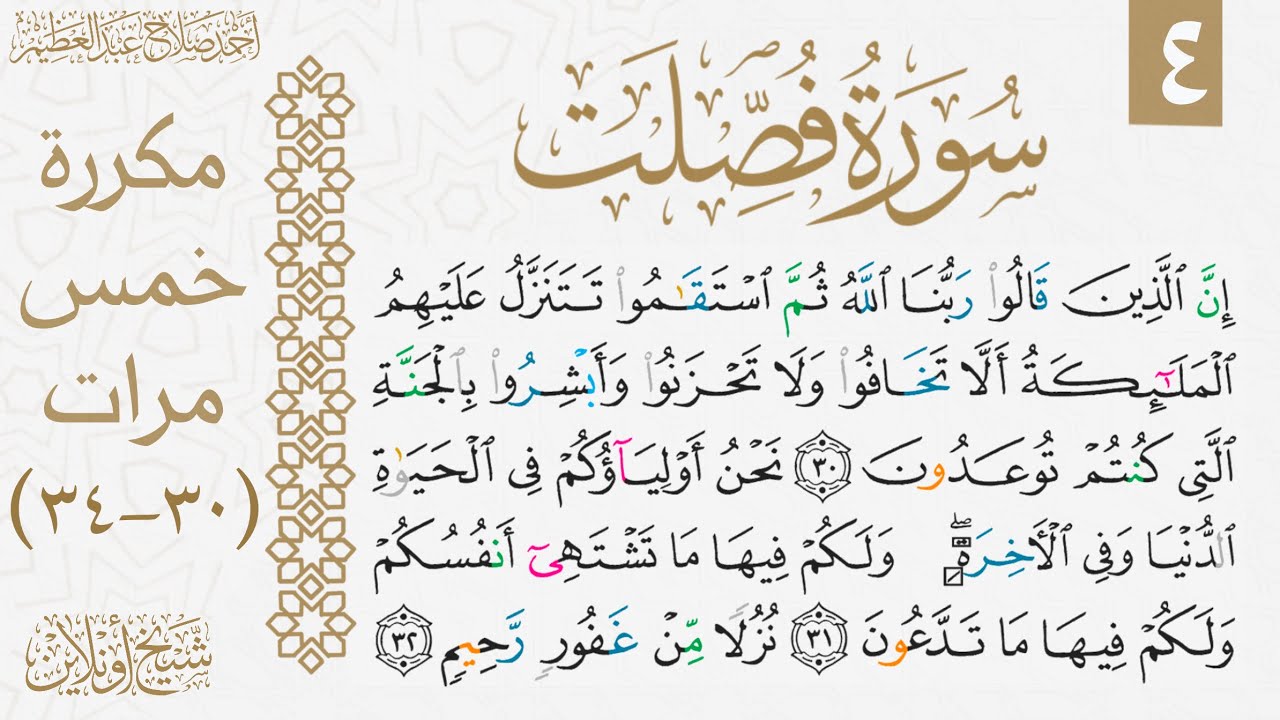 ٤
سُورَةُ فُصِّلَت
إِنَّ ٱلَّذِينَ قَالُوا۟ رَبُّنَا ٱللَّهُ ثُمَّ ٱسْتَقَـٰمُوا۟ تَتَنَزَّلُ عَلَيْهِمُ
ٱلْمَلَـٰٓئِكَةُ أَلَّا تَخَافُوا۟ وَلَا تَحْزَنُوا۟ وَأَبْشِرُوا۟ بِٱلْجَنَّةِ
ٱلَّتِى كُنتُمْ تُوعَدُونَ ٣٠ نَحْنُ أَوْلِيَآؤُكُمْ فِى ٱلْحَيَوٰةِ
ٱلدُّنْيَا وَفِى ٱلْأَخِرَةِ ۖ وَلَكُمْ فِيهَا مَا تَشْتَهِىٓ أَنفُسُكُمْ
وَلَكُمْ فِيهَا مَا تَدَّعُونَ ٣١ نُزُلًا مِّنْ غَفُورٍ رَّحِيمٍ ٣٢
أحمد صلاح عبد العظيم
مكررة
خمس
مرات
(٣٠-٣٤)
شيخ أونلاين